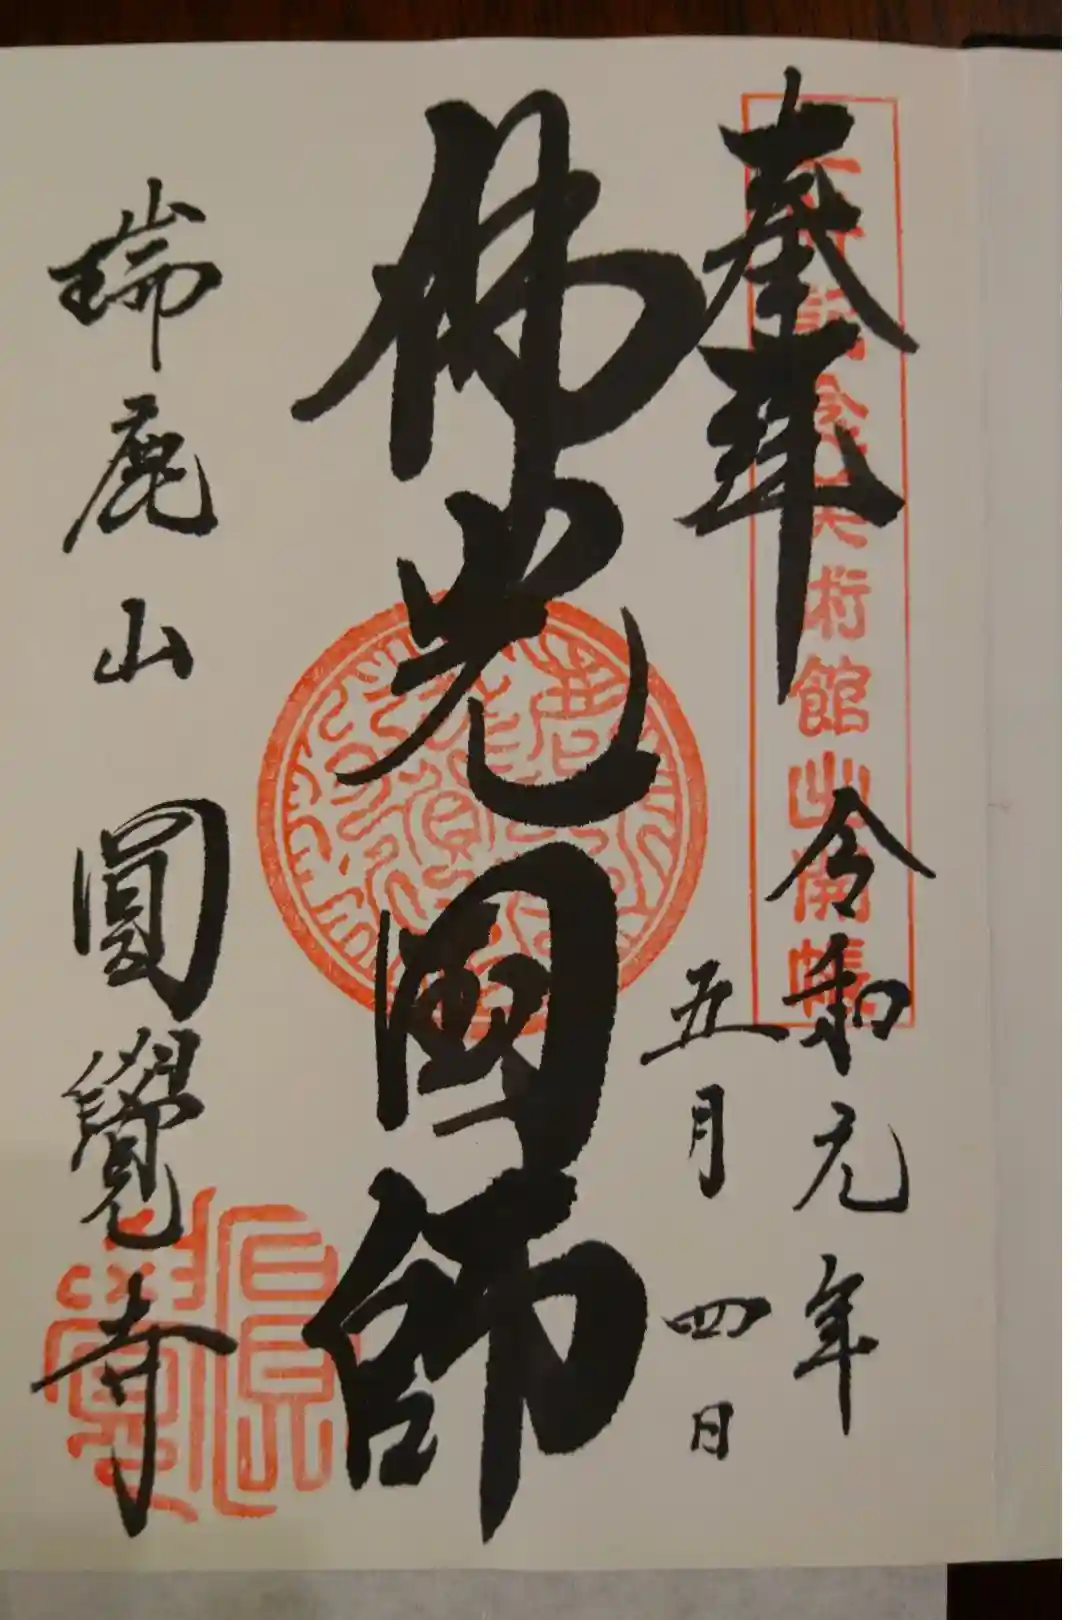 奉拜
三井記念美術館出開帳
令和元年
五月四日
佛光國師
瑞鹿山圓覺寺